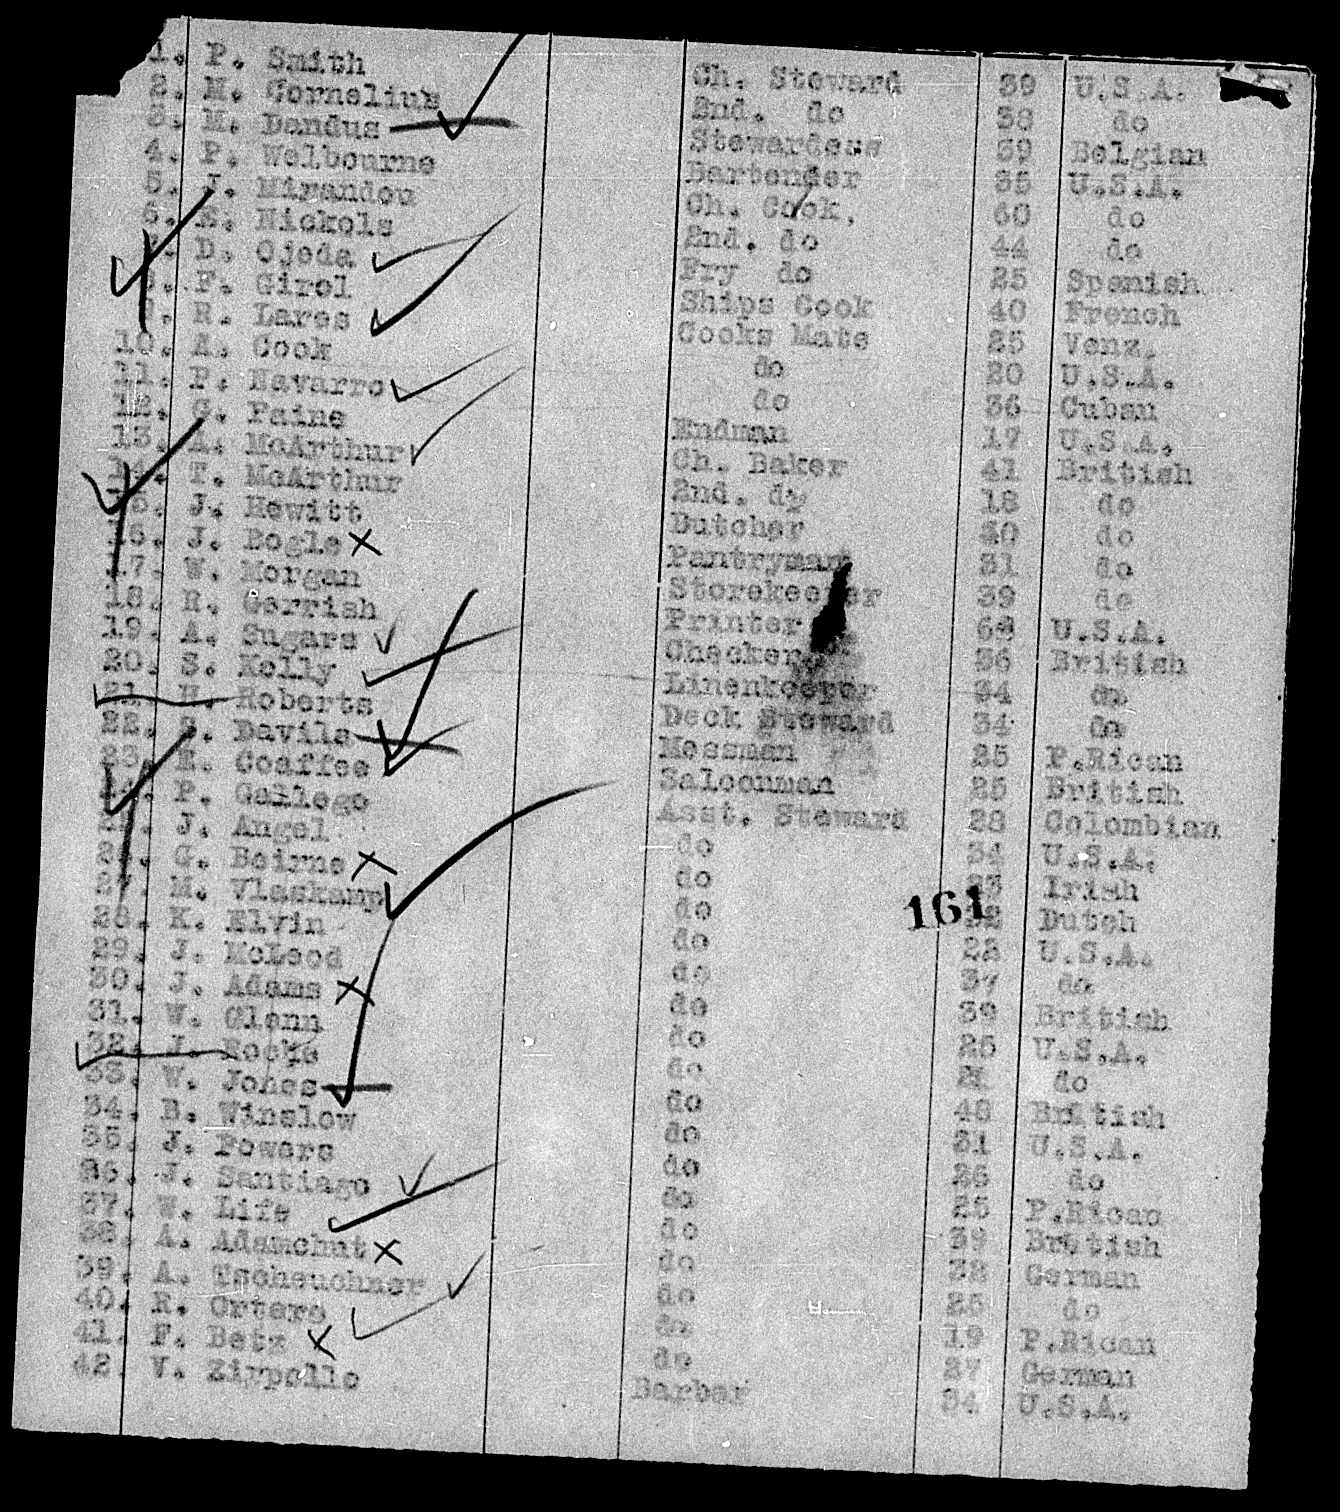 1. P. Smith Ch. Steward 39 U.S.A.
2. M. Cornelius 2nd. do 38 do
3. M. Dandus Stewardess 39 Belgian
4. P. Welbourne Bartender 35 U.S.A.
5. J. Mirandou Ch. Cook, 60 do
6. E. Nickols 2nd. do 44 do
7. D. Ojeda Fry do 25 Spanish
8. F. Girel Ships Cook 40 French
9. R. Lares Cooks Mate 25 Venz.
10. A. Cook do 20 U.S.A.
11. P. Navarro do 36 Cuban
12. G. Paine Endman 17 U.S.A.
13. A. McArthur Ch. Baker 41 British
14. T. McArthur 2nd. do 18 do
15. J. Hewitt Butcher 40 do
16. J. Bogle Pantryman 31 do
17. W. Morgan Storekeeper 39 do
18. R. Gerrish Printer U.S.A.
19. A. Sugars Checker 36 British
20. S. Kelly Linenkeeper 34 do
21 H. Roberts Deck Steward 34 do
22. S. Davila Messman 25 P.Rican
23. E. Coaffee Saloonman 25 British
24. P. Gallego Asst. Steward 28 Colombian
25. J. Angel do 34 U.S.A.
26. G. Beirne do 23 Irish
27. M. Vlaskamp do 161 32 Dutch
28. K. Elvin do 23 U.S.A.
29. J. McLeod do 37 do
30. J. Adams do 39 British
31. W. Glenn do 25 U.S.A.
32. J. Roche do 21 do
33. W. Jones do 48 British
34. B. Winslow do 31 U.S.A.
35. J. Powers do 26 do
36. J. Santiago do 25 P.Rican
37. W. Life do 39 British
38. A. Adamchut do 32 German
39. A. Tscheuchner do 25 do
40. R. Ortero do 19 P.Rican
41. F. Betz do 27 German
42. V. Zippollo Barber 34 U.S.A.